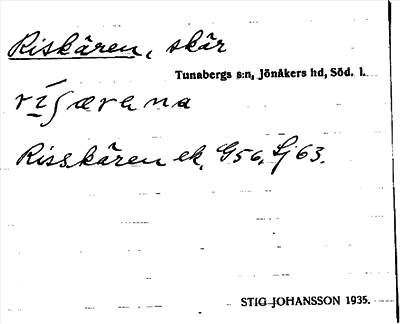 Riskären, skär
Tunabergs s:n, Jönåkers hd, Söd. l.
rɪʃærɐna
Risskären ek. G56, Sj 63.
STIG JOHANSSON 1935.